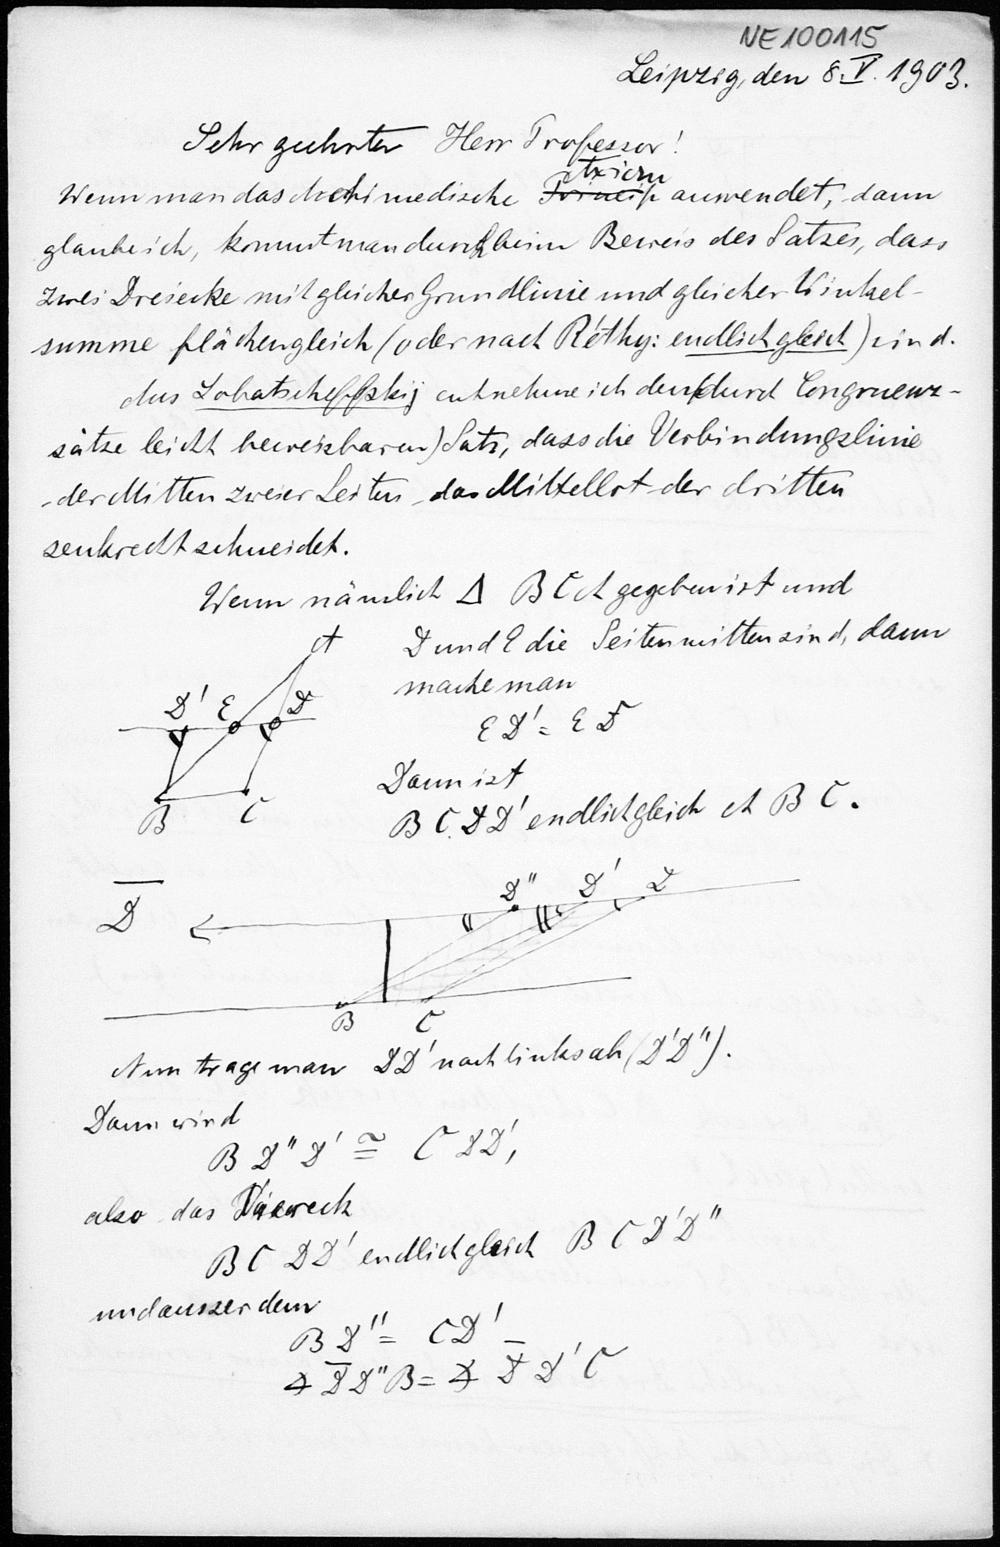 NE100115
Leipzig, den 8. V. 1903.
Sehr geehrter Herr Professor!
Axiom
Wenn man das Archimedische Princip anwendet, dann
glaube ich, kommt man durch beim Beweis des Satzes, dass
zwei Dreiecke mit gleicher Grundlinie und gleicher Winkel-
summe flächengleich (oder nach Réthy: endlichgleich) sind.
Aus Lobatscheffskij entnehme ich den (durch Congruenz-
sätze leicht beweisbaren) Satz, dass die Verbindungslinie
der Mitten zweier Seiten das Mittellot der dritten
senkrecht schneidet.
Wenn nämlich Δ BCA gegeben ist und
A
D und E die Seitenmitten sind, dann
mache man
D' E D
ED' = ED
Dann ist
B C
BCDD' endlichgleich ABC.
D̅ D'' D' D
B C
Nun trage man DD' nach links ab (D'D'').
Dann wird
BD''D' ≅ CDD',
also das Viereck
BCDD' endlichgleich BCD'D''
und ausserdem
BD'' = CD'
∢ D̅D''B = ∢ D̅D'C